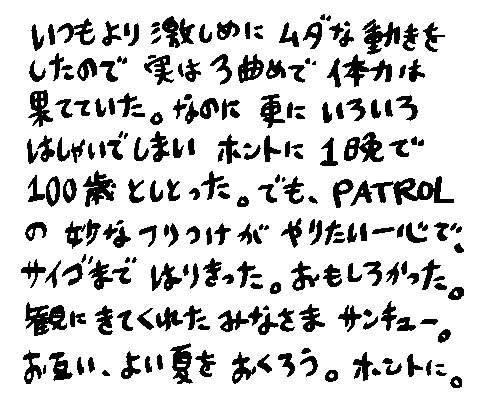 いつもより 激しめに ムダな 動きを
したので 実は 3曲めで 体力は
果てていた。なのに 更に いろいろ
はしゃいでしまい ホントに 1晩で
100歳 としとった。でも、PATROL
の 妙な フリつけが やりたい一心で、
サイゴまで はりきった。おもしろかった。
観に きてくれた みなさま サンキュー。
お互い、よい夏を おくろう。ホントに。